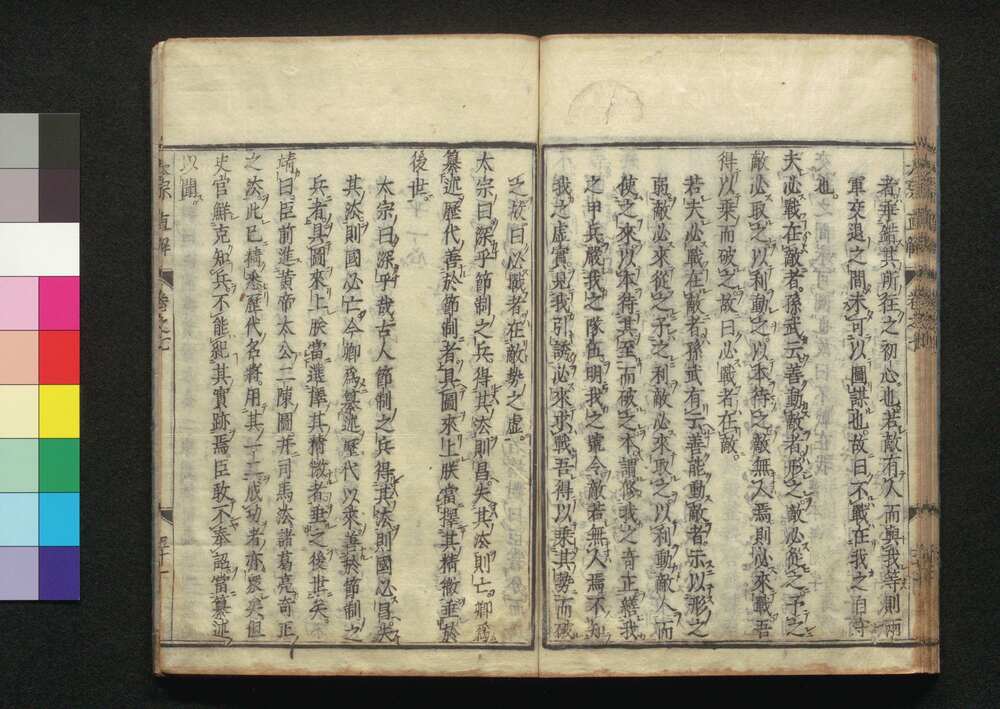 者垂錯其所在之初心也若敵有人而與我等則兩
軍交退之間未可以圖謀也故曰不戰在我之自守
夫必戰在敵者孫武云善動敵者形之敵必從之予之
敵必取之以利動之以本待之敵無人焉則必來戰吾
得以乘而破之故曰必戰者在敵
若夫必戰在敵者孫武有云善能動敵者示以形之
弱敵必來從之予之利敵必來取之以利動敵人而
使之來以本待其至而破之本謂修我之奇正繕我
之甲兵嚴我之隊伍明我之號令敵若無人焉不知
我之虛實見我引誘必來求戰吾得以乘其勢而破
之故曰必戰者在敵勢之虛
太宗曰深乎節制之兵得其法則昌失其法則亡卿爲
纂述歷代善於節制者具圖來上朕當擇其精微垂於
後世
太宗曰深乎哉古人節制之兵得其法則國必昌失
其法則國必亡今卿爲纂述歷代以來善於節制之
兵者具圖來上朕當選擇其精微者垂之後世矣
靖曰臣前進黃帝太公二陳圖并司馬法諸葛亮奇正
之法此已精悉歷代名將用其一二成功者亦衆矣但
史官鮮克知兵不能紀其實跡焉臣敢不奉詔當纂述
以聞
直解
卷之七